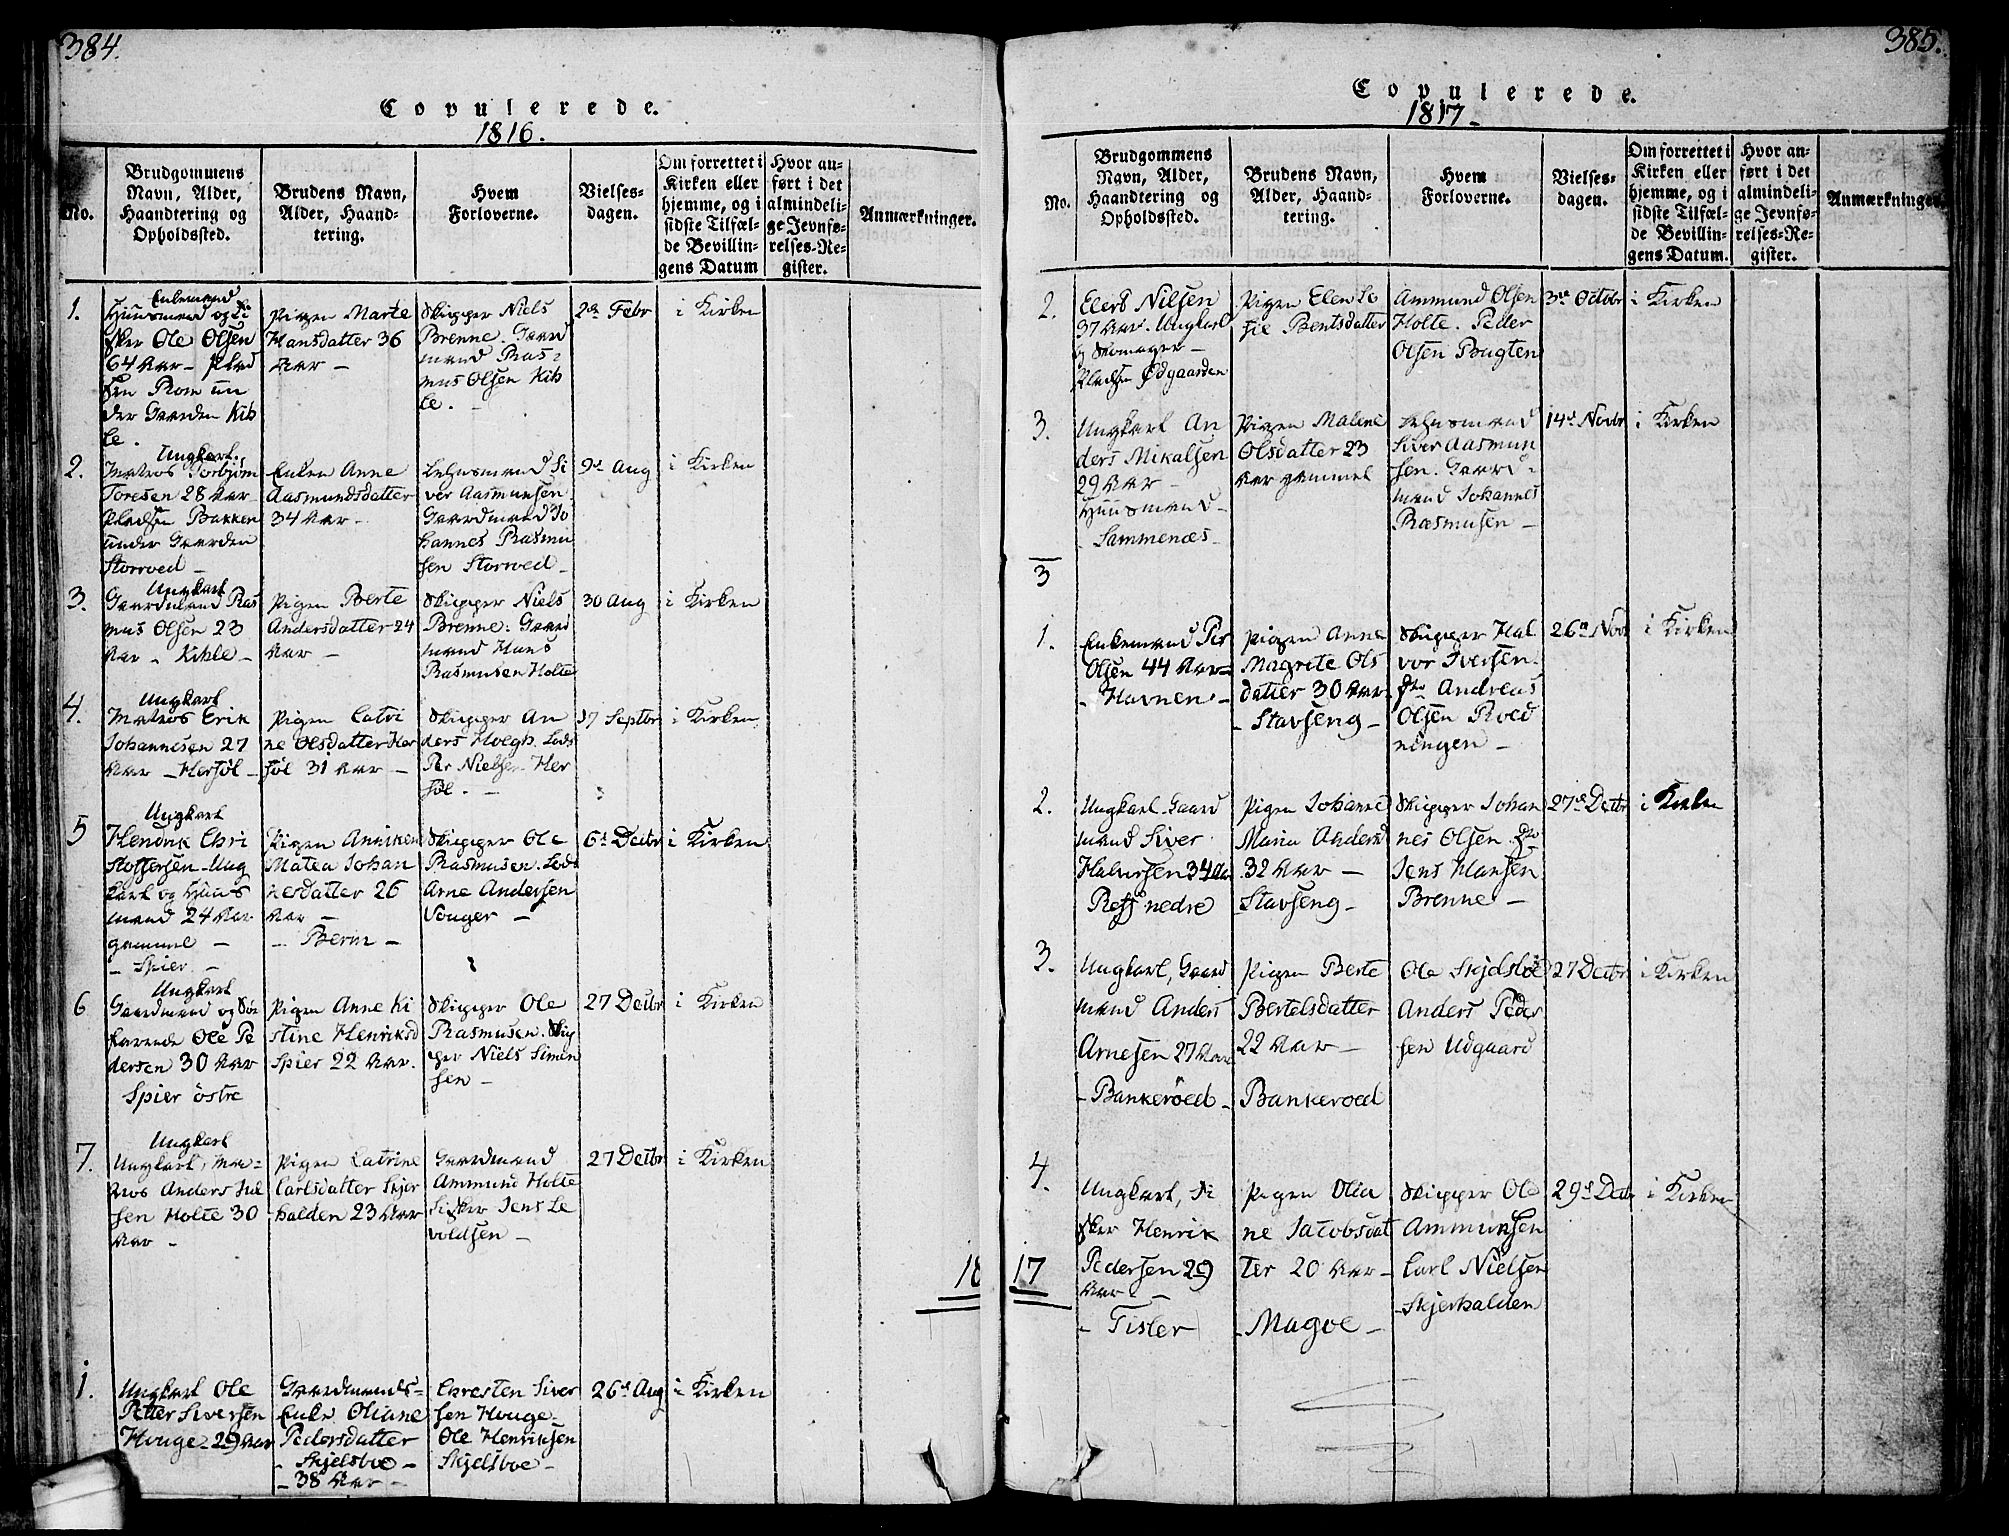 384.
Copulerede.
1816.
No.
Brudgommens
Navn, Alder,
Haandtering og
Opholdssted.
Brudens Navn,
Alder, Haand-
tering.
Hvem
Forloverne.
Vielses-
dagen.
Om forrettet i
Kirken eller
hjemme, og i
sidste Tilfæl-
de Bevillin-
gens Datum
Hvor an-
ført i det
almindeli-
ge Jevnfø-
relses-Re-
gister.
Anmærkninger.
1.
Enkemand
Huusmand og Fi
sker Ole Olsen
64 Aar - Plad
sen Rom un
der Gaarden Kih
le.
Pigen Marte
Hansdatter 36
Aar -
Skipper Niels
Brenne. Gaard
mand Ras=
mus Olsen Kih
le. -
2de Febr
i Kirken
2.
Ungkarl,
Matros Torbjørn
Toresen 28 Aar
Pladsen Bakken
under Gaarden
Storroed -
Enken Anne
Aasmundsdatter
34 Aar -
Lehnsmand Si
ver Aasmunsen
Gaardmand Jo
hannes Rasmu
sen Storroed -
9de Aug
i Kirken
3.
Ungkarl
Gaardmand Ras
mus Olsen 23
Aar - Kihle -
Pigen Berte
Andersdatter 24
Aar -
Skipper Niels
Brenne. Gaard
mand Hans
Rasmusen Holte
30 Aug
i Kirken
4.
Ungkarl
Matros Erik
Johannesen 27
Aar - Hersøl -
Pigen Catri
ne Olsdatter Her
søl 31 Aar -
Skipper An
ders Hoegh. Lods
Per Nielsen Her
søl. -
17 Septbr
i Kirken
5
Ungkarl
Hendrik Chri
stoffersen - Ung
karl og Huus
mand 24 Aar
gammel -
- Spier -
Pigen Anniken
Matea Johan
nesdatter 26
Aar -
- Berin -
Skipper Ole
Rasmusen. Lods
Arne Andersen
Vouger -
6te Decbr
i Kirken
6
Ungkarl
Gaardmand og Søe
farende Ole Pe
dersen 30 Aar
Spier østre
Pigen Anne Ki
stine Henriksd
Spier 22 Aar.
Skipper Ole
Rasmusen. Skip
per Niels Simen
sen -
27 Decbr
i Kirken
7.
Ungkarl
Ungkarl, Ma=
tros Anders Jul
sen Holte 30
Aar -
Pigen Catrine
Carlsdatter Skjer
halden 23 Aar
Gaardmand
Ammund Holte
Fisker Jens Le
voldsen -
27 Decbr
i Kirken
18
1.
Ungkarl Ole
Petter Siversen
Houge - 29 Aar
Gaardmands=
Enke Oliane
Pedersdatter
- Skjelsboe -
- 38 Aar -
Chresten Siver
sen Houge -
Ole Henriksen
Skjelsboe -
26de Aug
i Kirken
385.
Copulerede.
1817 -
No.
Brudgommens
Navn, Alder,
Haandtering og
Opholdssted.
Brudens Navn,
Alder, Haand-
tering.
Hvem
Forloverne.
Vielses-
dagen.
Om forrettet i
Kirken eller
hjemme, og i
sidste Tilfæl-
de Bevillin-
gens Datum.
Hvor an-
ført i det
almindeli-
ge Jevnfø-
relses-Re-
gister.
Anmærkninger
2.
Elert Nilsen
37 Aar. Ungkarl
og Skomager -
Pladsen Ødgaarden
Pigen Elen So
fie Bentsdatter
Ammund Olsen
Holte. Peder
Olsen Bugten
3die Octobr
i Kirken
3.
Ungkarl An
ders Mikalsen
29 Aar -
Huusmand -
- Sammenæs -
Pigen Malene
Olsdatter 23
Aar gammel
Lehnsmand
Siver Aasmun
sen. Gaard=
mand Johannes
Rasmusen -
14de Novbr
i Kirken
3
1.
Enkemand Per
Olsen 44 Aar -
- Havnen -
Pigen Anne
Magrete Ols
datter 30 Aar
- Stavseng -
Skipper Hal
vor Iversen.
Andreas
Olsen Roed
ningen -
26de Novr
i Kirken
2.
Ungkarl Gaard
mand Siver
Halvorsen 34 Aar
Reff nedre
Pigen Johanne
Maria Andersd
32 Aar -
Stavseng -
Skipper Johan
nes Olsen Do
Jens Hansen
Brenne -
27de Decbr
i Kirken
3.
Ungkarl, Gaard
mand Anders
Arnesen 27 Aar
- Bankerøed -
Pigen Berte
Bertelsdatter
22 Aar -
Bankeroed
Ole Skjelsboe
Anders Peder
sen Udgaard
27 Decbr
i Kirken
4.
17
Ungkarl, Fi
sker Henrik
Pedersen 29
Aar -
- Tisler
Pigen Olia
ne Jacobsdat
ter 20 Aar -
- Magoe -
Skipper Ole
Ammunsen
Carl Nielsen
- Skjerhalden
29de Decbr
i Kirken